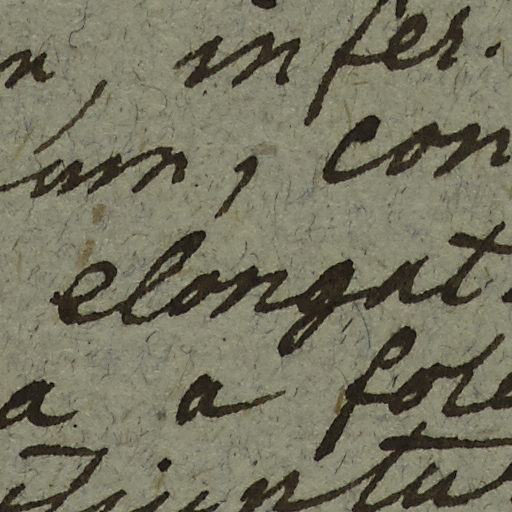 n, infer.
um, con
elongat
a a fole
juntu